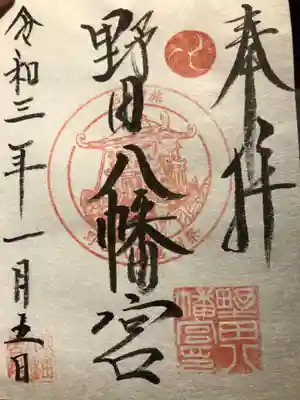 奉拝
野田八幡宮
令和三年一月五日
野田八
幡宮印